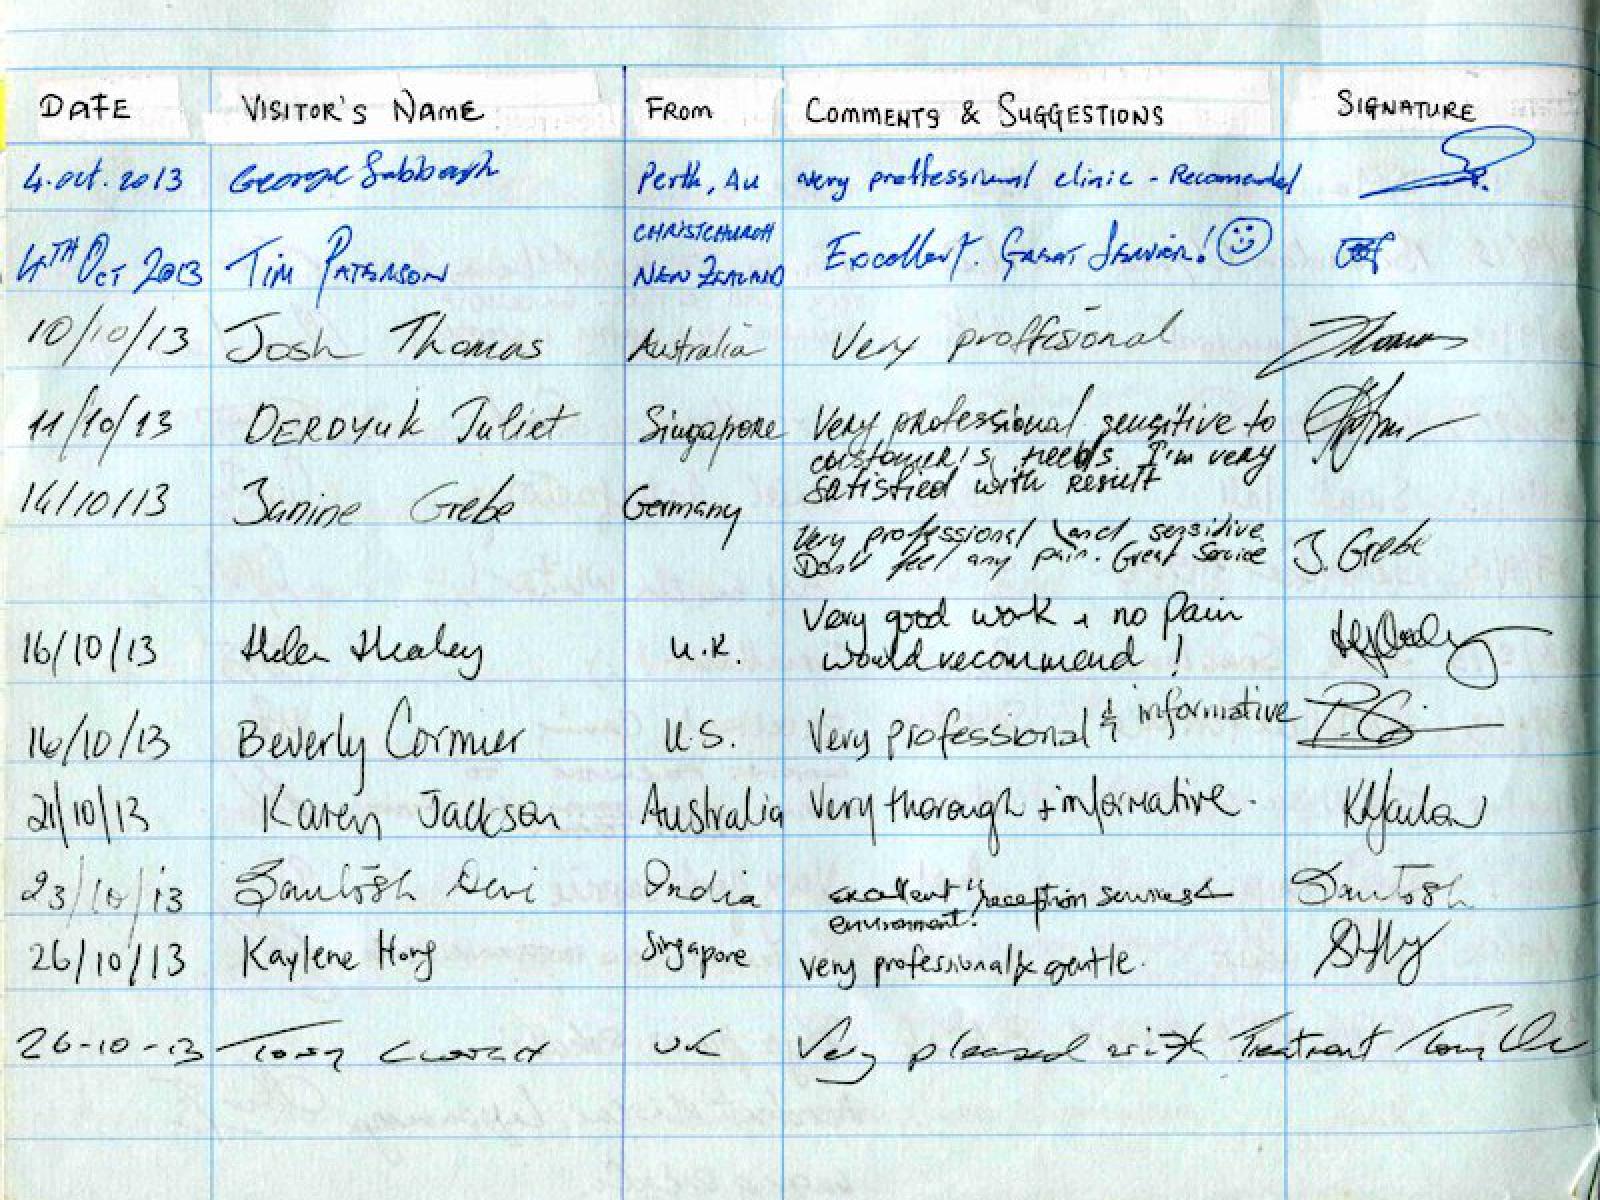 DATE VISITOR'S NAME FROM COMMENTS & SUGGESTIONS SIGNATURE
4.oct.2013 George Sabbagh Perth, Au very proffessional clinic - Recomended
4TH Oct 2013 Tim PATERSON CHRISTCHURCH NEW ZEALAND Excellent. GREAT SERVICE!
10/10/13 Josh Thomas Australia Very proffisional Thomas
11/10/13 DERDYUK Juliet Singapore Very professional sensitive to
customer's needs I'm very
satisfied with result
14/10/13 Janine Grebe Germany
Very professional and sensitive
Don't feel any pain. Great Service J. Grebe
16/10/13 Helen Healey U.K. Very good work + no pain
would recommend!
16/10/13 Beverly Cormier U.S. Very professional & informative
21/10/13 Karen Jackson Australia Very thorough + informative.
23/10/13 Santosh Devi India excellent reception services &
environment! Santosh
26/10/13 Kaylene Hong Singapore very professional & gentle.
26-10-13 Tony UK Very pleased with Treatment Tony